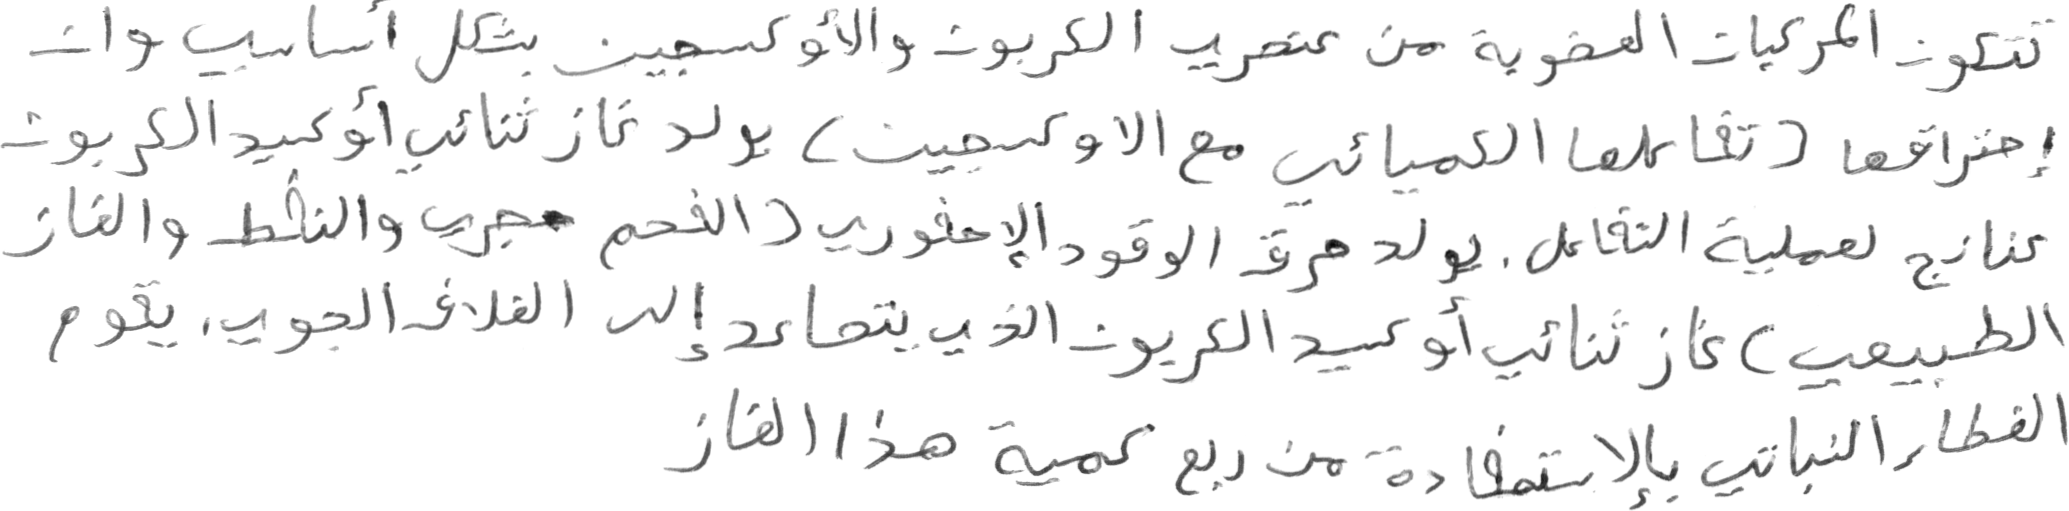 تتكون المركبات العضوية من عنصري الكربون والأوكسجين بشكل أساسي وان
إحتراقها (تفاعلها الكميائي مع الاوكسجين) يولد غاز ثنائي أوكسيد الكربون
كناتج لعملية التفاعل. يولد حرق الوقود الإحفوري (الفحم حجري والنفط والغاز
الطبيعي) غاز ثنائي أوكسيد الكربون الذي يتصاعد إلى الغلاف الجوي. يقوم
الغطاء النباتي بالإستفادة من ربع كمية هذا الغاز